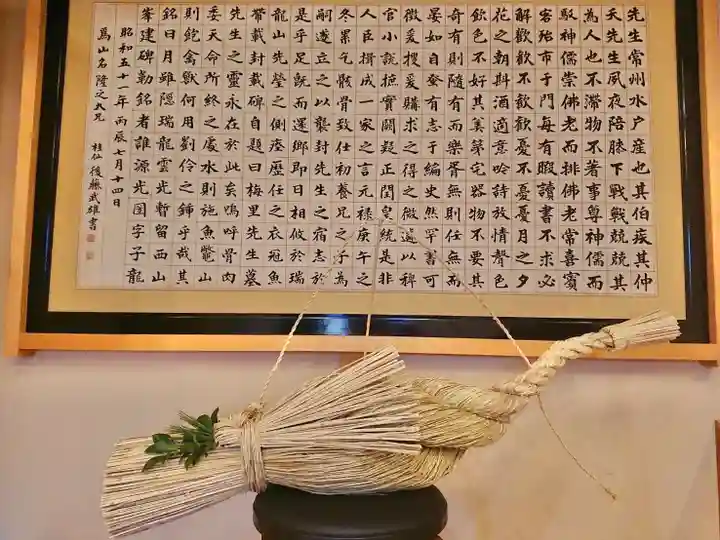 先生常州水戶產也其伯疾其仲
夭先生夙夜陪膝下戰戰兢兢其
為人也不滯物不著事尊神儒而
駁神儒崇佛老而排佛老常喜賓
客殆市于門每有暇讀書不求必
解歡不歡歡憂不憂憂月之夕
花之朝斟酒適意吟詩放情聲色
飲食不好其美第宅器物不要其
奇有則隨有而樂胥無則任無而
晏如自蚤有志于編史然罕書可
徵爰搜爰購求之得之微遴以稗
官小說摭實闕疑正閏皇統是非
人臣輯成一家之言元祿庚午之
冬累乞骸骨致仕初養兄之子為
嗣遂立之以襲封先生之宿志於
是乎足既而還鄉即日相攸於瑞
龍山先塋之側瘞歷任之衣冠魚
帶載封載碑自題曰梅里先生墓
先生之靈永在於此矣嗚呼骨肉
委天命所終之處水則施魚鼈山
則飽禽獸何用劉伶之鍤乎哉其
銘曰月雖隱瑞龍雲光暫留西山
峯建碑勒銘者誰源光圀字子龍
昭和五十一年丙辰七月十四日
為山名隆之大兄
桂仙 後藤武雄書